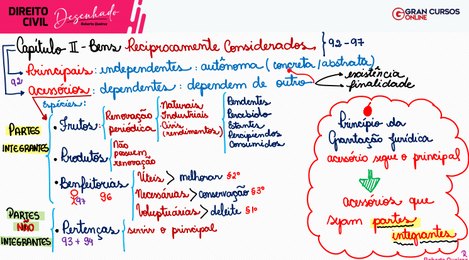 DIREITO
CIVIL Desenhado
Roberta Queiroz
GRAN CURSOS
ONLINE
Capítulo II - Bens Reciprocamente Considerados } 92-97
Principais: independentes: autônoma (concreta/abstrata)
92
Acessórios: dependentes: dependem de outro
existência
finalidade
espécies:
PARTES
INTEGRANTES
• Frutos:
Renovação
periódica
Naturais
Industriais
Civis
(rendimentos)
Pendentes
Percebido
Estantes
Percipiendos
Consumidos
• Produtos
Não
possuem
renovação
• Benfeitorias
97 96
Úteis > melhorar §2º
Necessárias > conservação §3º
Voluptuárias > deleite §1º
PARTES
NÃO
INTEGRANTES
• Pertenças
93 + 94
servir o principal
Princípio da
Gravitação Jurídica
acessório segue o principal
acessórios que
sejam partes
integrantes
3
Roberta Queiroz